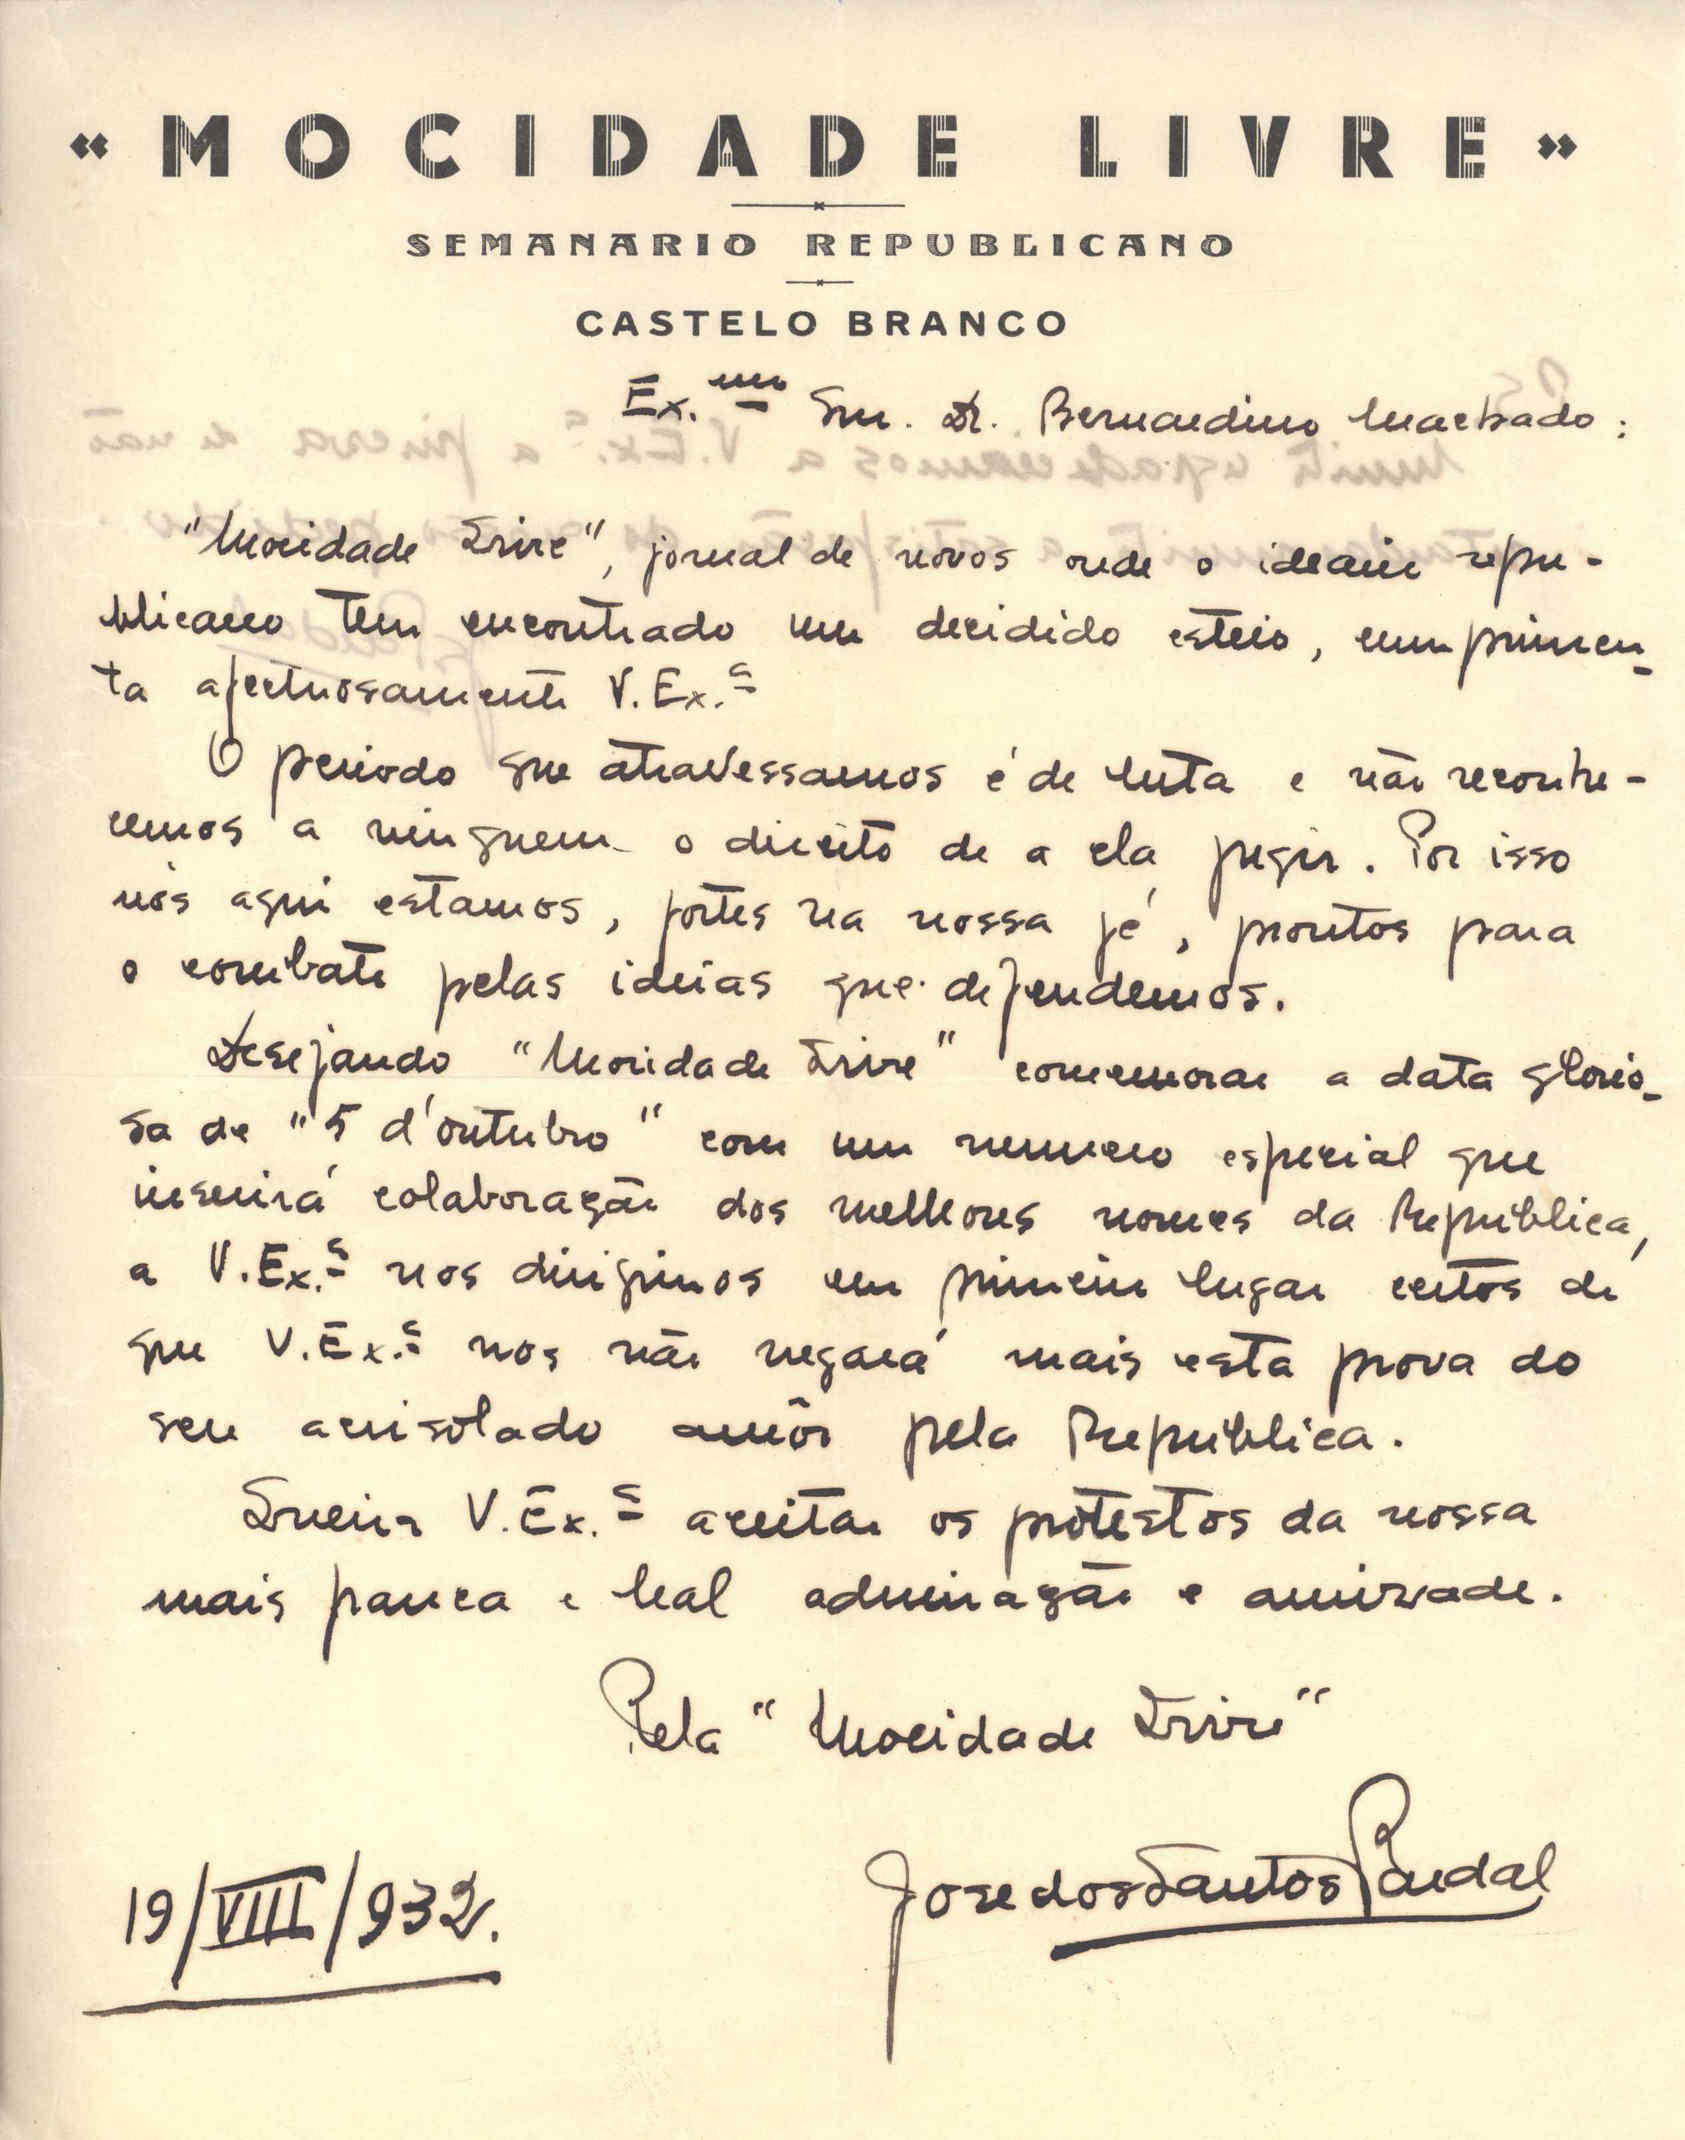 « MOCIDADE LIVRE »
SEMANARIO REPUBLICANO
CASTELO BRANCO
Ex.mo Snr. Dr. Bernardino Machado:
"Mocidade Livre", jornal de novos onde o ideario repu-
blicano tem encontrado um decidido esteio, cumprimen-
ta afectuosamente V. Ex.ª
O periodo que atravessamos é de luta e não reconhe-
cemos a ninguem o direito de a ela fugir. Por isso
nós aqui estamos, fortes na nossa fé, prontos para
o combate pelas ideias que defendemos.
Desejando "Mocidade Livre" comemorar a data glorio-
sa de "5 d'outubro" com um numero especial que
inserirá colaboração dos melhores nomes da Republica,
a V. Ex.ª nos dirigimos em primeiro lugar certos de
que V. Ex.ª nos não negará mais esta prova do
seu acrisolado amôr pela Republica.
Queira V. Ex.ª aceitar os protestos da nossa
mais franca e leal admiração e amizade.
Pela "Mocidade Livre"
José dos Santos Pardal
19/VIII/932.